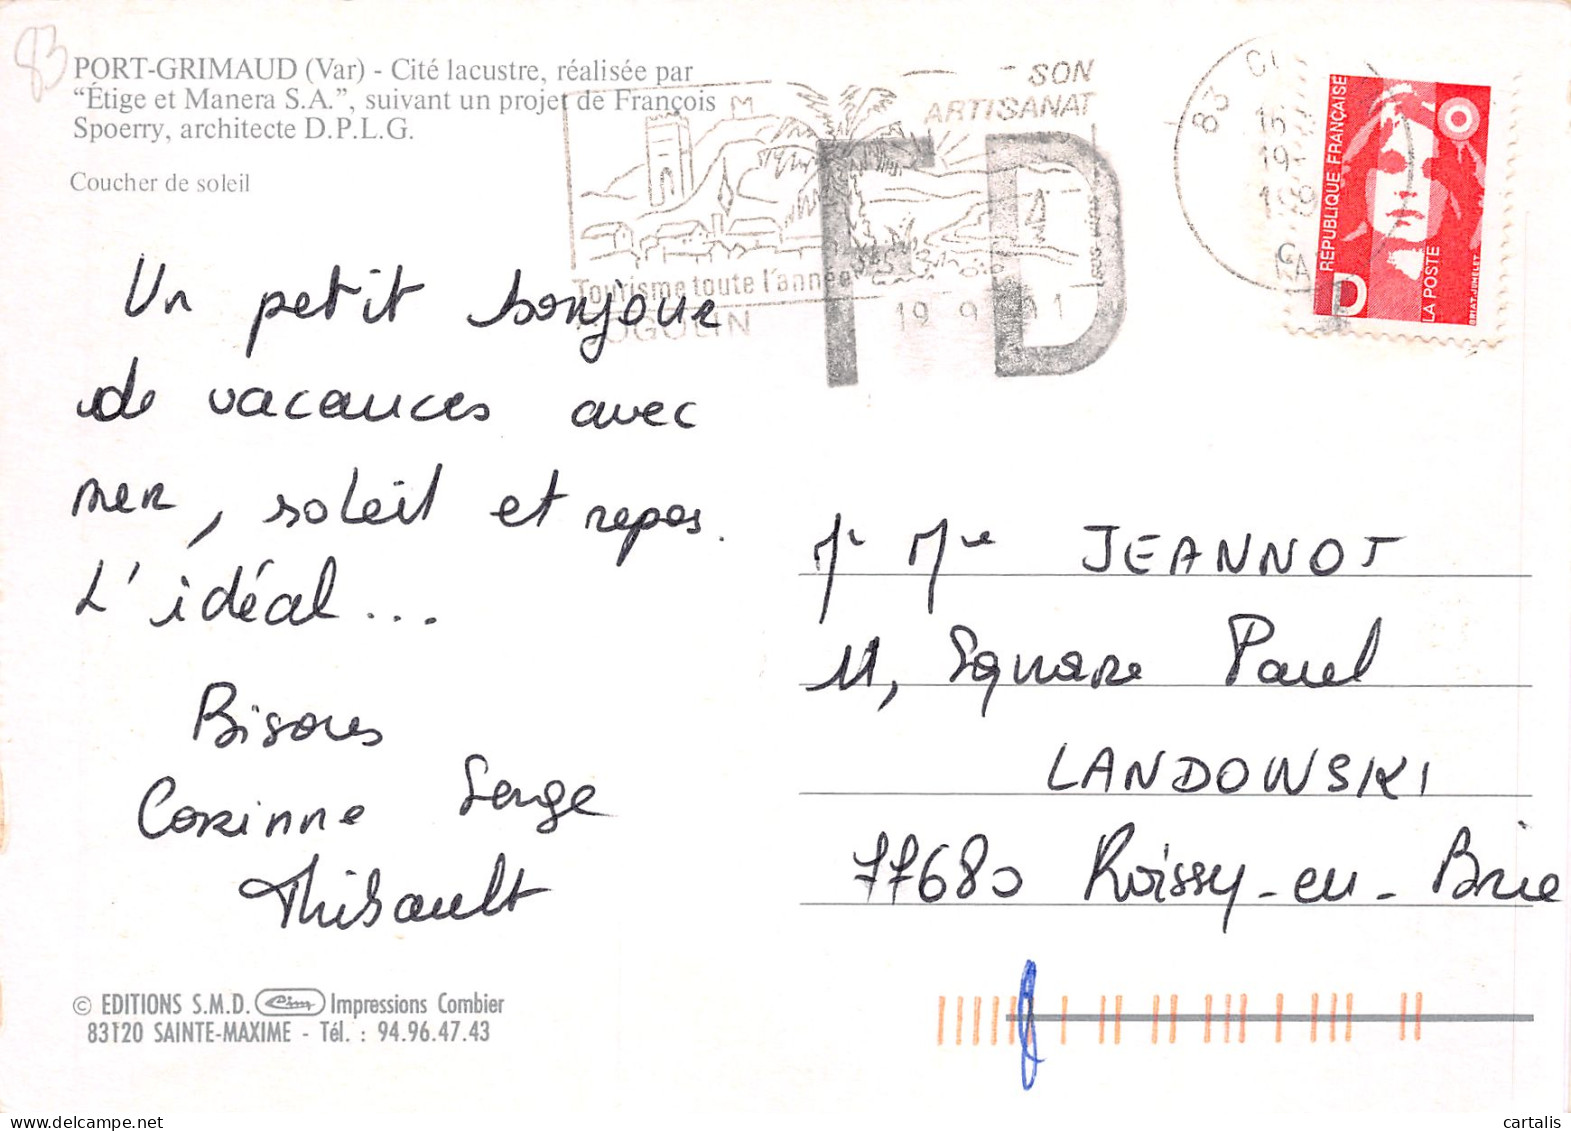 83
PORT-GRIMAUD (Var) - Cité lacustre, réalisée par
“Étige et Manera S.A.”, suivant un projet de François
Spoerry, architecte D.P.L.G.
Coucher de soleil
SON
ARTISANAT
Tourisme toute l'année
COGOLIN
19 9 91
FD
83
15
19
RÉPUBLIQUE FRANÇAISE
D
LA POSTE
BRIAT-JUMELET
Un petit bonjour
de vacances avec
mer, soleil et repos.
L'idéal...
Bisous
Corinne Serge
Thibault
Mr Mme JEANNOT
11, Square Paul
LANDOWSKI
77680 Roissy-en-Brie
© EDITIONS S.M.D. Cim Impressions Combier
83120 SAINTE-MAXIME - Tél. : 94.96.47.43
cartalis